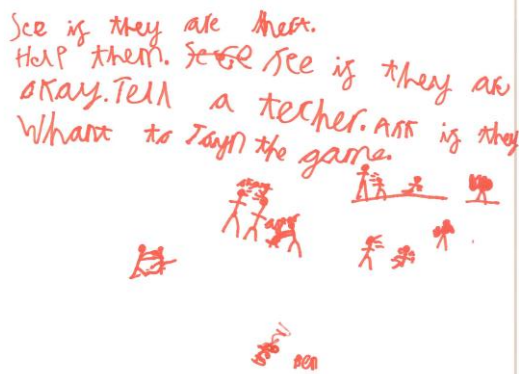 See if they are hert.
Help them. See if they are
okay. Tell a techer. Ask if they
Whant to Joyn the game.
Ben